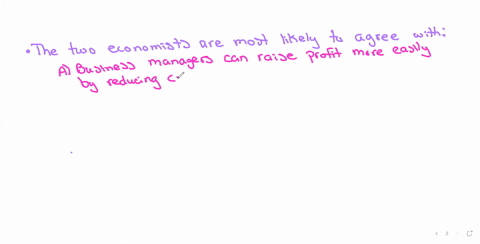 • The two economists are most likely to agree with:
A) Business managers can raise profit more easily
by reducing c